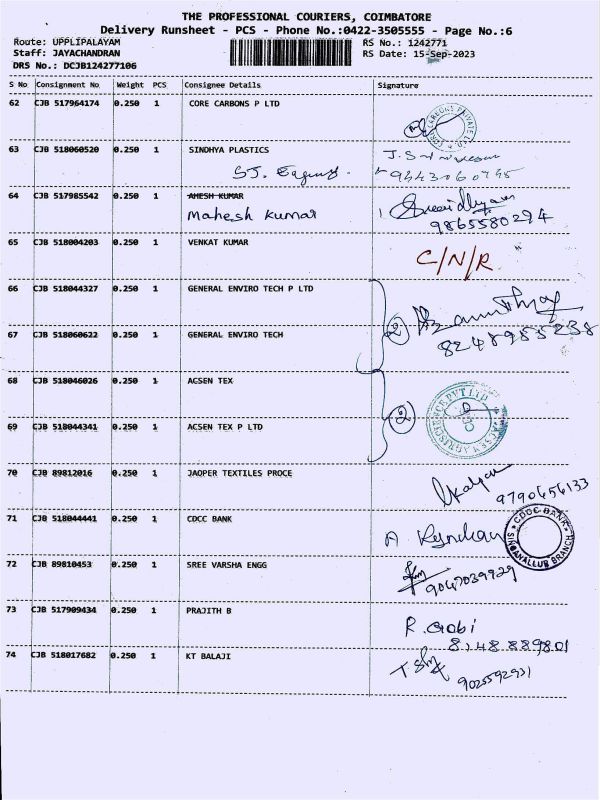 THE PROFESSIONAL COURIERS, COIMBATORE
Delivery Runsheet - PCS - Phone No.:0422-3505555 - Page No.:6
Route: UPPLIPALAYAM RS No.: 1242771
Staff: JAYACHANDRAN RS Date: 15-Sep-2023
DRS No.: DCJB124277106
S No Consignment No Weight PCS Consignee Details Signature
62 CJB 517964174 0.250 1 CORE CARBONS P LTD
63 CJB 518060520 0.250 1 SINDHYA PLASTICS
64 CJB 517985542 0.250 1 AHESH KUMAR
Mahesh Kumar
9865580294
65 CJB 518004203 0.250 1 VENKAT KUMAR
C/N/R
66 CJB 518044327 0.250 1 GENERAL ENVIRO TECH P LTD
2
67 CJB 518060622 0.250 1 GENERAL ENVIRO TECH
68 CJB 518046026 0.250 1 ACSEN TEX
2
69 CJB 518044341 0.250 1 ACSEN TEX P LTD
70 CJB 89812016 0.250 1 JAOPER TEXTILES PROCE
9790656133
71 CJB 518044441 0.250 1 CDCC BANK
CDCC BANK
SINGANALLUR BRANCH
72 CJB 89810453 0.250 1 SREE VARSHA ENGG
9047039929
73 CJB 517909434 0.250 1 PRAJITH B
R. Gobi
8148889801
74 CJB 518017682 0.250 1 KT BALAJI
9025592931